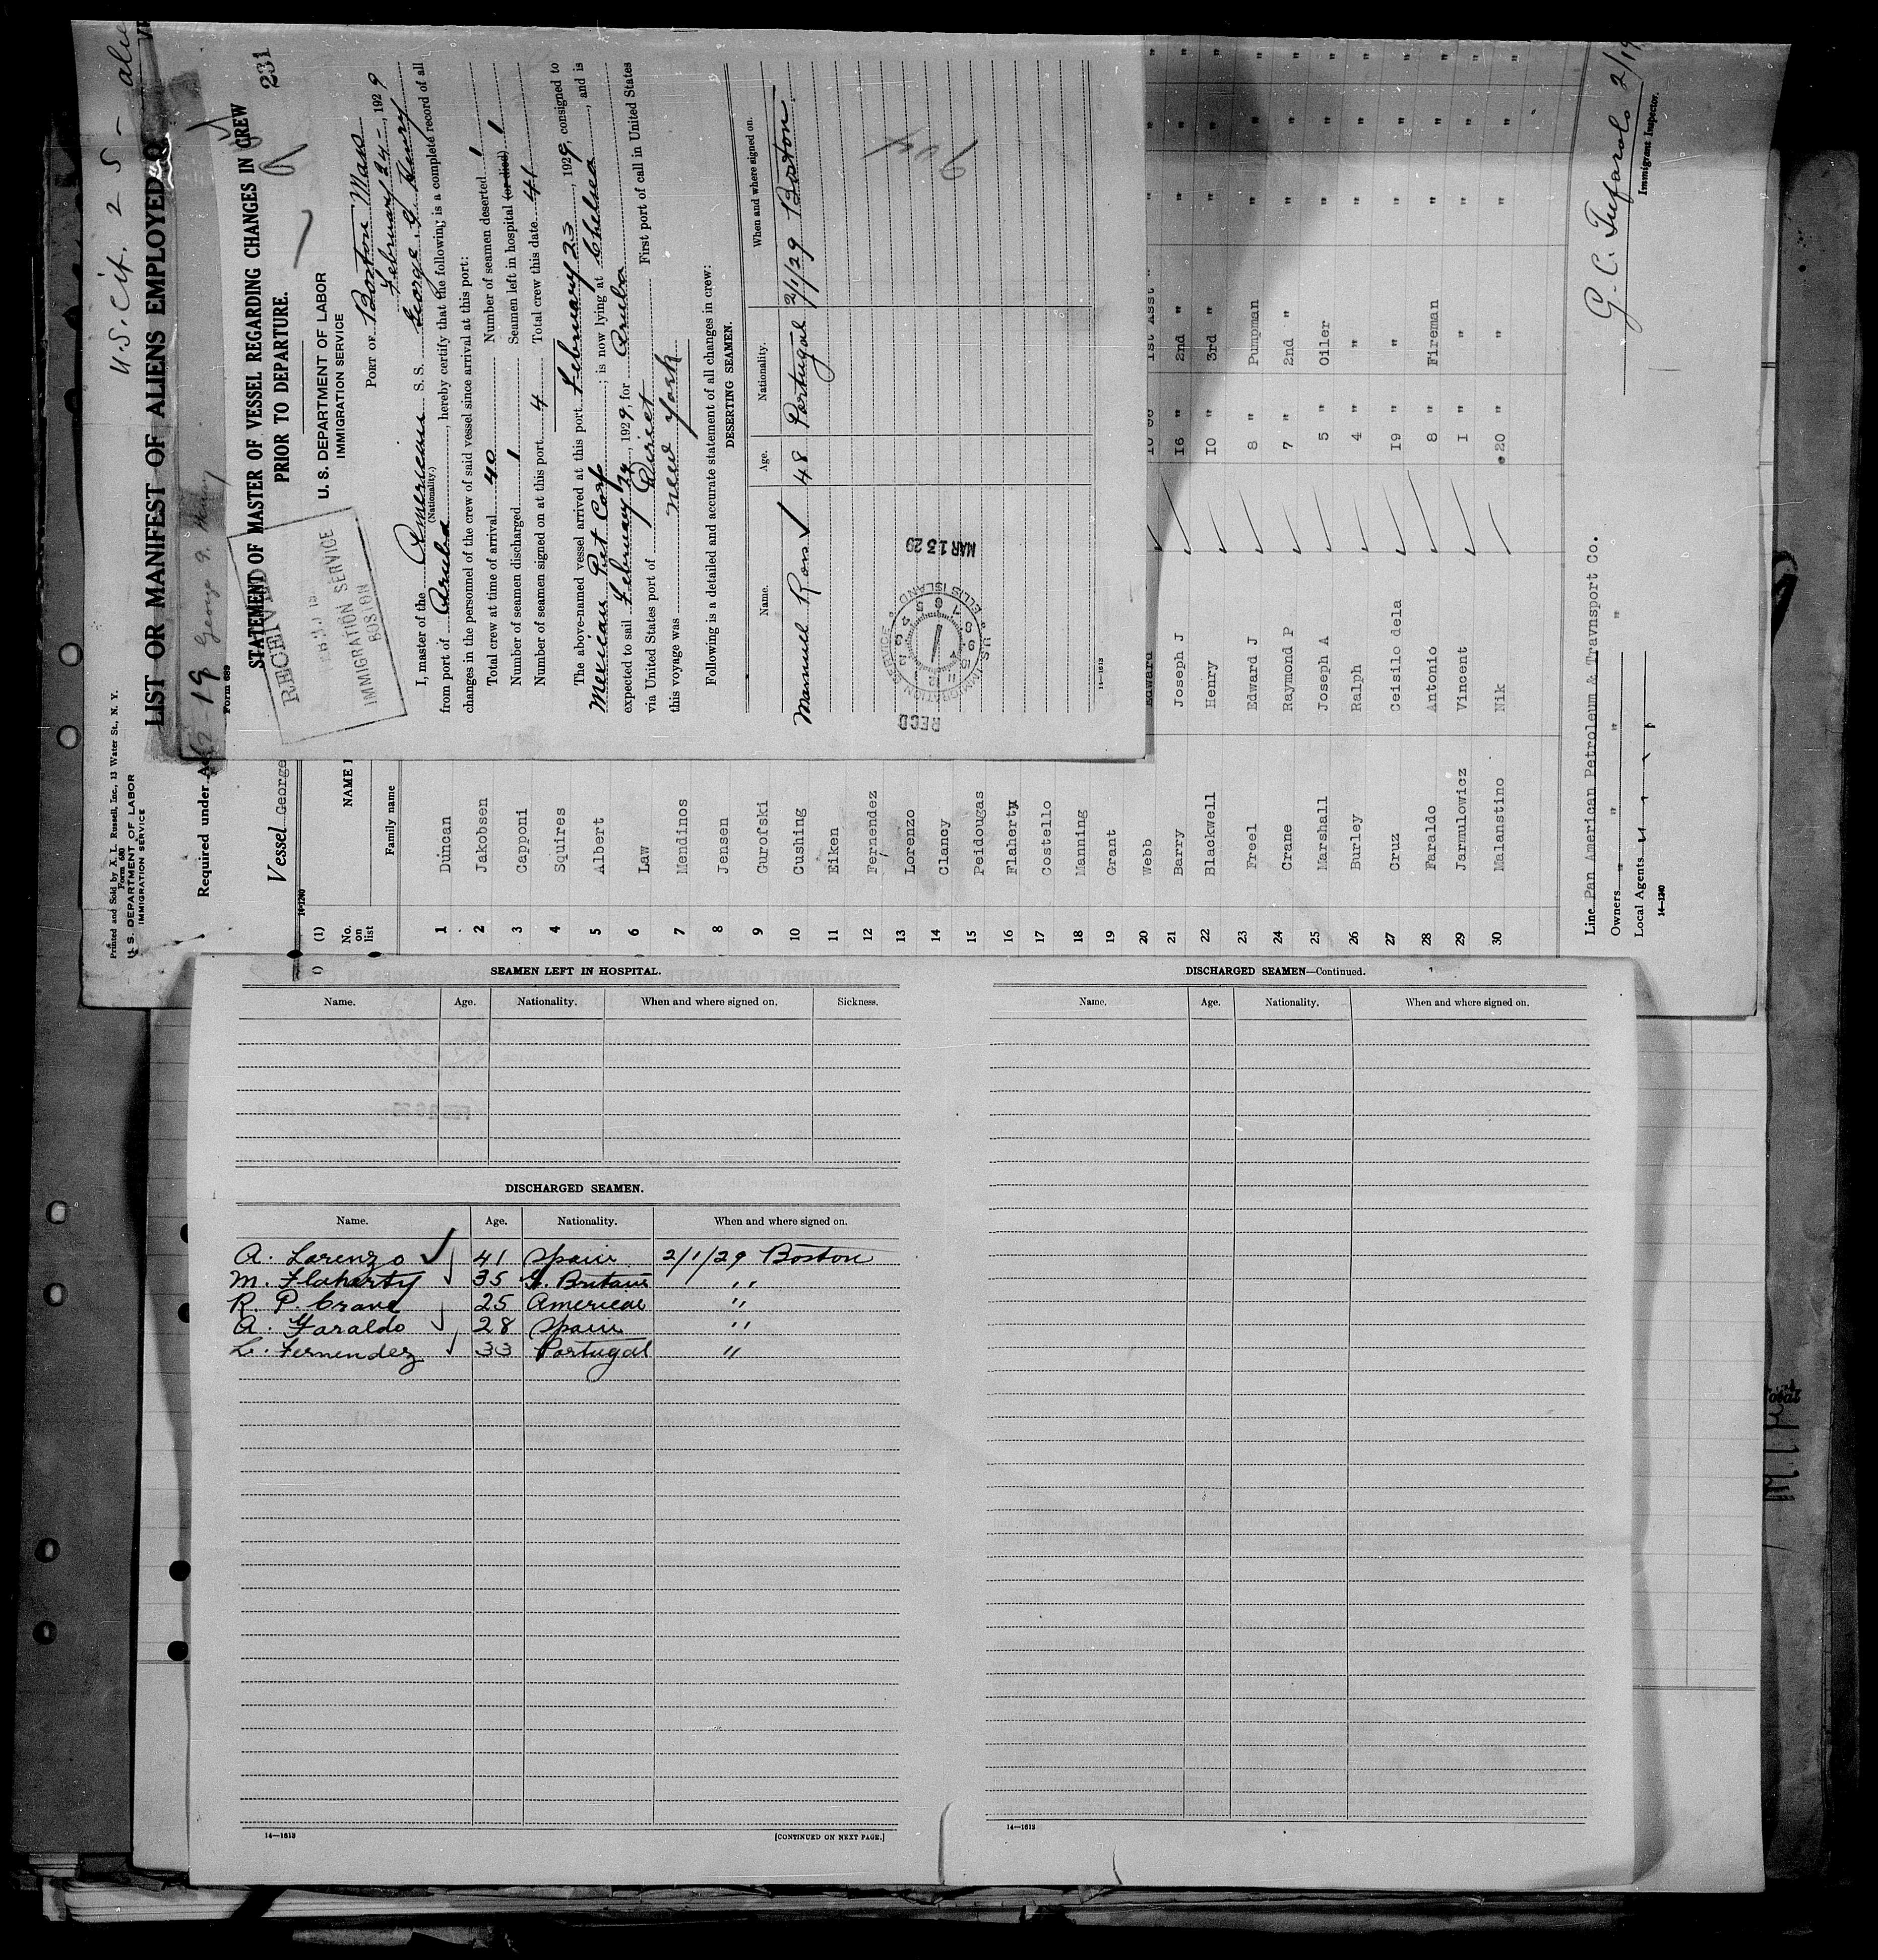 U.S. Cit. 25 -
Printed and Sold by A. L. Russell, Inc., 13 Water St., N. Y.
Form 680
U. S. DEPARTMENT OF LABOR
IMMIGRATION SERVICE
LIST OR MANIFEST OF ALIENS EMPLOYED O
Required under
Vessel George
14-1240
(1)
No. on list
NAME
Family name
1 Duncan
2 Jakobsen
3 Capponi
4 Squires
5 Albert
6 Law
7 Mendinos
8 Jensen
9 Gurofski
10 Cushing
11 Eiken
12 Fernendez
13 Lorenzo
14 Clancy
15 Peidougas
16 Flaherty
17 Costello
18 Manning
19 Grant
20 Webb Edward 1st Asst "
21 Barry Joseph J 16 " 2nd " " " "
22 Blackwell Henry 10 " 3rd " " " "
23 Freel Edward J 8 " Pumpman " " "
24 Crane Raymond P 7 " 2nd " " " "
25 Marshall Joseph A 5 " Oiler " " "
26 Burley Ralph 4 " " " " "
27 Cruz Ceisilo dela 19 " " " " "
28 Faraldo Antonio 8 " Fireman " " "
29 Jarmulowicz Vincent 1 " " " " "
30 Malanstino Nik 20 " " " " "
Line Pan American Petroleum & Travnsport Co.
Owners " " "
Local Agents
14-1240
Immigrant Inspector.
Form 689
231
STATEMENT OF MASTER OF VESSEL REGARDING CHANGES IN CREW
PRIOR TO DEPARTURE.
U. S. DEPARTMENT OF LABOR
IMMIGRATION SERVICE
RECEIVED
IMMIGRATION SERVICE
BOSTON
PORT OF Boston Mass
February 24-, 1929
I, master of the American S. S. George G Henry
(Nationality.)
from port of Aruba, hereby certify that the following is a complete record of all
changes in the personnel of the crew of said vessel since arrival at this port:
Total crew at time of arrival 40 Number of seamen deserted 1
Number of seamen discharged 1 Seamen left in hospital (or died) 1
Number of seamen signed on at this port 4 Total crew this date 41
The above-named vessel arrived at this port February 23, 1929, consigned to
Mexican Pet Corp; is now lying at Chelsea, and is
expected to sail February 24, 1929, for Aruba
via United States port of Direct First port of call in United States
this voyage was New York
Following is a detailed and accurate statement of all changes in crew:
DESERTING SEAMEN.
Name. Age. Nationality. When and where signed on.
Manuel Ros 48 Portugal 2/1/29 Boston
RECD
U.S. IMMIGRATION SERVICE
ELLIS ISLAND
MAR 13 29
14-1613
SEAMEN LEFT IN HOSPITAL.
Name. Age. Nationality. When and where signed on. Sickness.
DISCHARGED SEAMEN.
Name. Age. Nationality. When and where signed on.
A. Lorenzo 41 Spain 2/1/29 Boston
M. Flaharty 35 G. Britain "
R. P. Crane 25 American "
A. Faraldo 28 Spain "
L. Fernendez 33 Portugal "
14-1613
[CONTINUED ON NEXT PAGE.]
DISCHARGED SEAMEN—Continued.
Name. Age. Nationality. When and where signed on.
14-1613
Total